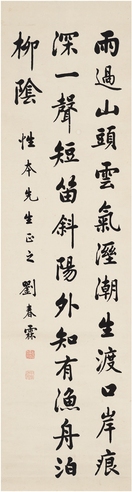 雨過山頭雲氣溼潮生渡口岸痕
深一聲短笛斜陽外知有漁舟泊
柳陰
性本先生正之 劉春霖